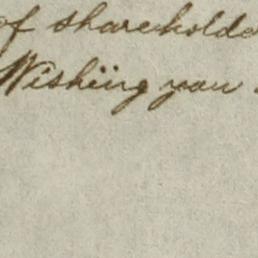 of shareholde
Wishing you